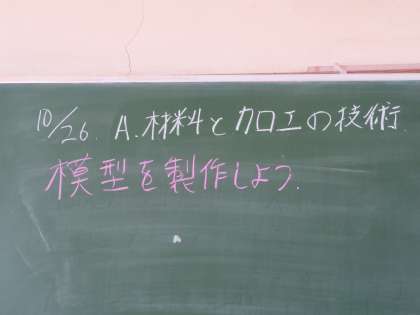 10/26. A. 材料と加工の技術
模型を製作しよう.